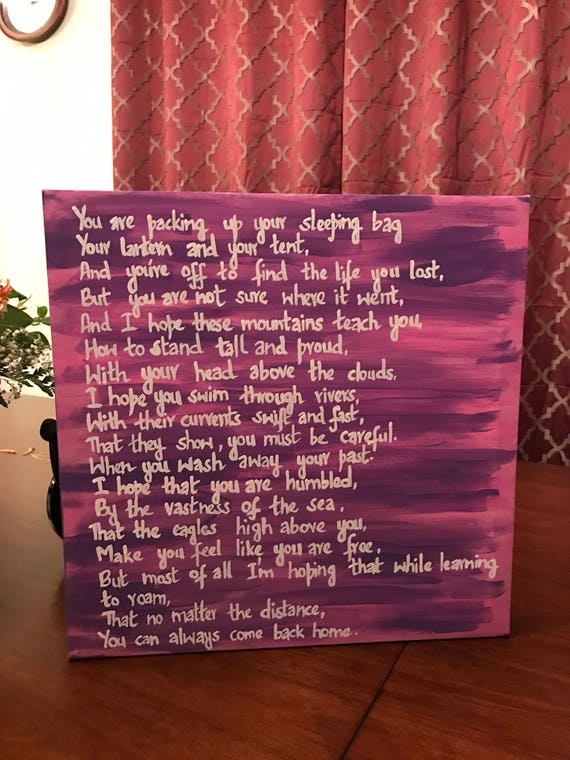 You are packing up your sleeping bag
Your lantern and your tent,
And you're off to find the life you lost,
But you are not sure where it went,
And I hope these mountains teach you
How to stand tall and proud,
With your head above the clouds.
I hope you swim through rivers,
With their currents swift and fast,
That they show, you must be careful.
When you wash away your past.
I hope that you are humbled,
By the vastness of the sea.
That the eagles high above you,
Make you feel like you are free.
But most of all I'm hoping that while learning
to roam,
That no matter the distance,
You can always come back home.